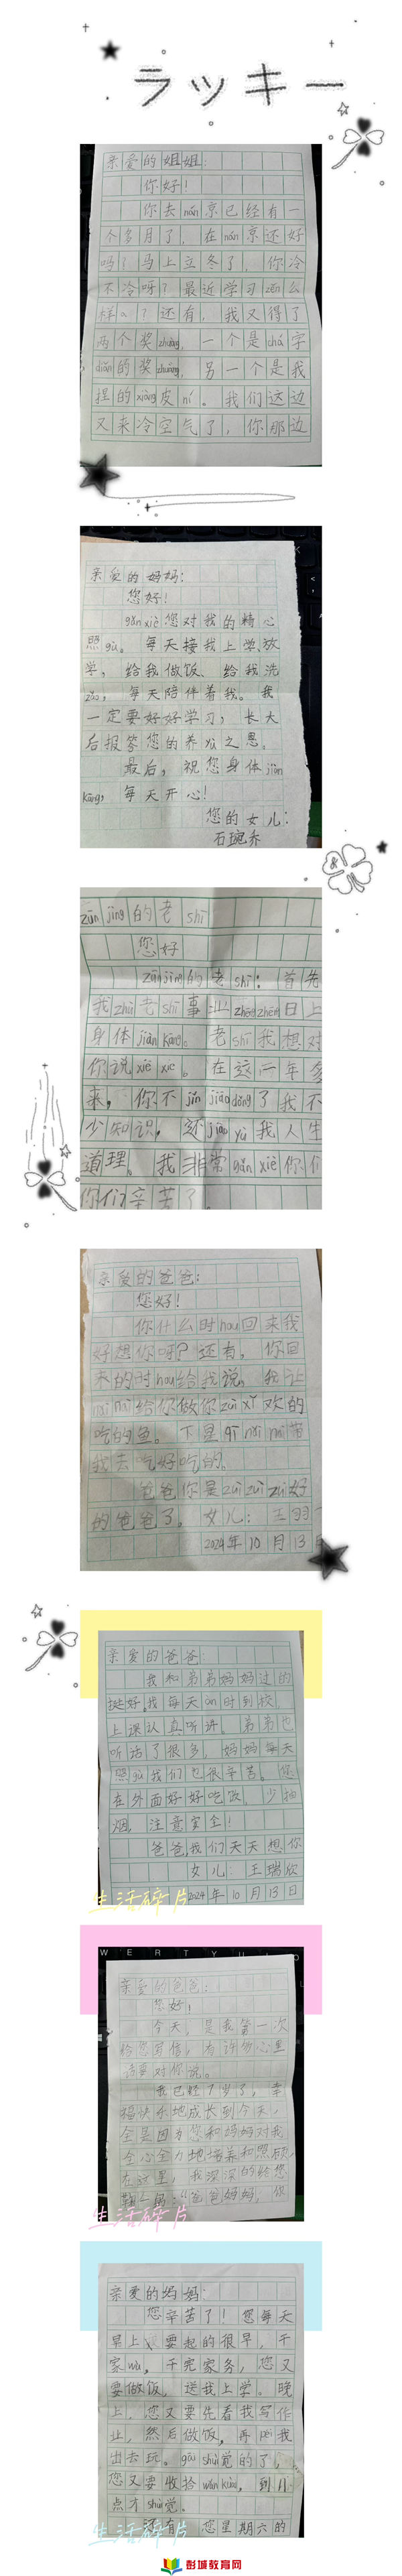 ラッキー
亲爱的姐姐：
你好！
你去nán京已经有一
个多月了，在nán京还好
吗？马上立冬了，你冷
不冷呀？最近学习zěn么
样a？还有，我又得了
两个奖zhuàng，一个是chá字
diǎn的奖zhuàng，另一个是我
捏的xiàng皮ní。我们这边
又来冷空气了，你那边
亲爱的妈妈：
您好！
gǎn xiè您对我的精心
照gù。每天接我上学、放
学，给我做饭、给我洗
zǎo，每天陪伴着我。我
一定要好好学习，长大
后报答您的养yù之恩。
最后，祝您身体jiàn
kāng，每天开心！
您的女儿：
石琬乔
zūn jìng的老shī
您好
zūn jìng的老shī：首先
我zhù老shī事业zhēng zhēng日上
身体jiàn kāng。老shī我想对
你说xiè xie。在这一年多
来，你不jǐn jiāo dǒng了我不
少知识，还jiāo yù我人生
道理。我非常gǎn xiè你们
你们辛苦了
亲爱的爸爸：
您好！
你什么时hou回来我
好想你呀？还有，你回
来的时hou给我说，我让
nǎi nai给你做你zuì xǐ欢的
吃的鱼。下星qī nǎi nai带
我去吃好吃的。
爸爸你是zuì zuì zuì好
的爸爸了。女儿：王羽
2024年10月13日
亲爱的爸爸：
我和弟弟妈妈过的
挺好。我每天àn时到校，
上课认真听讲。弟弟也
听话了很多，妈妈每天
照gù我们也很辛苦。您
在外面好好吃饭，少抽
烟，注意安全！
爸爸，我们天天想你
女儿：王瑞欣
2024年10月13日
生活碎片
W E R T Y U I O
亲爱的爸爸：
您好！
今天，是我第一次
给您写信，有许多心里
话要对你说。
我已经7岁了，幸
福快乐地成长到今天，
全是因为您和妈妈对我
全心全力地培养和照顾，
在这里，我深深的给您
鞠一躬：“爸爸妈妈，你
生活碎片
亲爱的妈妈：
您辛苦了！您每天
早上要起的很早，干
家wù，干完家务，您又
要做饭，送我上学。晚
上，您又要先看我写作
业，然后做饭，再péi我
出去玩。gāi shuì觉的了，
您又要收拾wǎn kuài，到11
点才shuì觉。
还有，您星期六的
生活碎片
彭城教育网